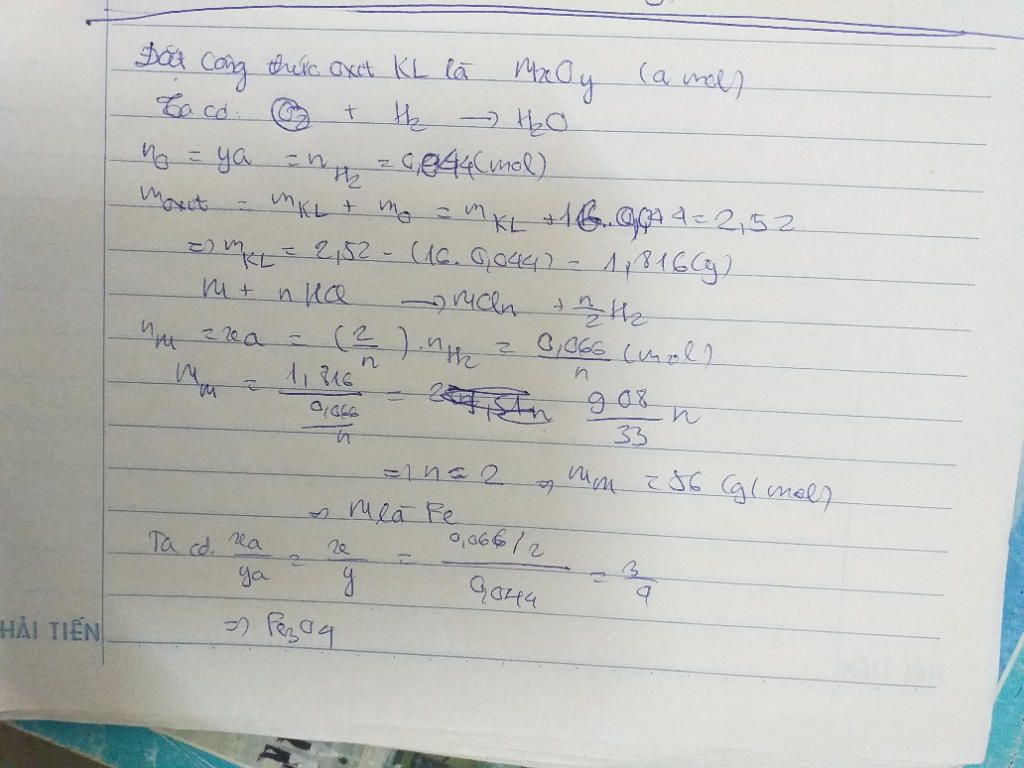 Đặt công thức oxit KL là MxOy (a mol)
Ta có: O2 + H2 → H2O
nO = ya = nH2 = 0,044 (mol)
moxit = mKL + mO = mKL + 16.0,044 = 2,52
=> mKL = 2,52 - (16.0,044) = 1,816(g)
M + nHCl → MCln + n/2 H2
nM = xa = (2/n).nH2 = 0,066/n (mol)
MM = 1,816/(0,066/n) = 908/33 n
=> n = 2 => MM = 56 (g/mol)
=> M là Fe
Ta có. xa/ya = x/y = (0,066/2)/0,044 = 3/4
=> Fe3O4
HẢI TIẾN